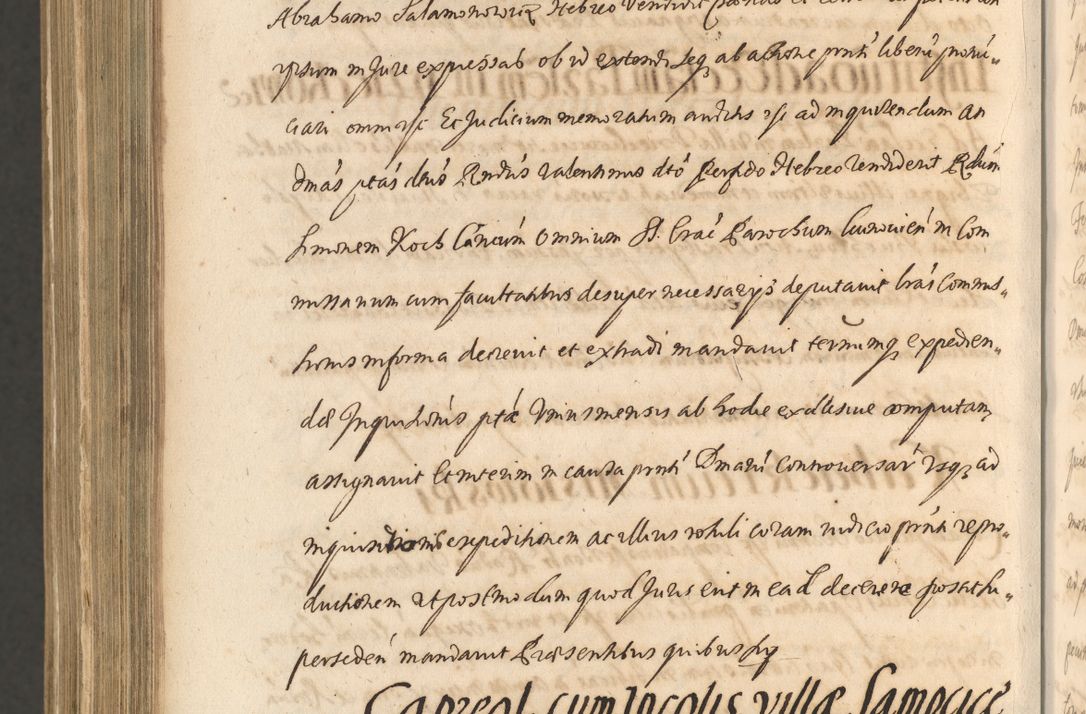 Abrahamo Salamonowicz Hebreo vendidit
ipsum in Jure expressas ob id extendi seq ab actione pnti liberũ pronũ„
ciari omni rse Et Judicium memoratum auditis rse ad inquirendum An
dnũs ptás dtũs Rndũs Valentinus dtõ Perfido Hebreo Vendiderit Rdũm
Simonem Koch Cáncũm Omnium SS. Crac̃ Parochum in Com
missarium cum facultatibus desuper necessarijs deputavit lrás Commis„
sionis in forma decrevit et extradi mandavit terũmq expedien„
dæ Inquisitiõnis ptæ Unius mensis ab hodie exclusive computañ
assignavit Et interim in causa pnti Dmarũ Controversar̃ Usq ad
inquisitionis expeditionem ac illius rotuli coram iudicio pnti repro„
ductionem Ut postmodum quod Juris erit in ea decerere possit su„
perseden̄ mandavit Præsentibus quibus
Capreol. cum Incolis villæ Samocicẽ